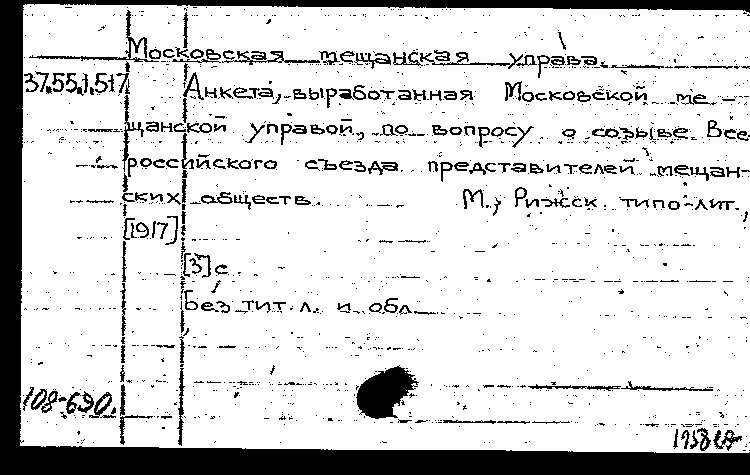 Московская мещанская управа.
37.55.1.517 Анкета, выработанная Московской ме-
щанской управой, по вопросу о созыве Все-
российского съезда представителей мещан-
ских обществ. М., Ряжск. типо-лит.,
[1917]
[3] с.
Без тит. л. и обл.
108-690.